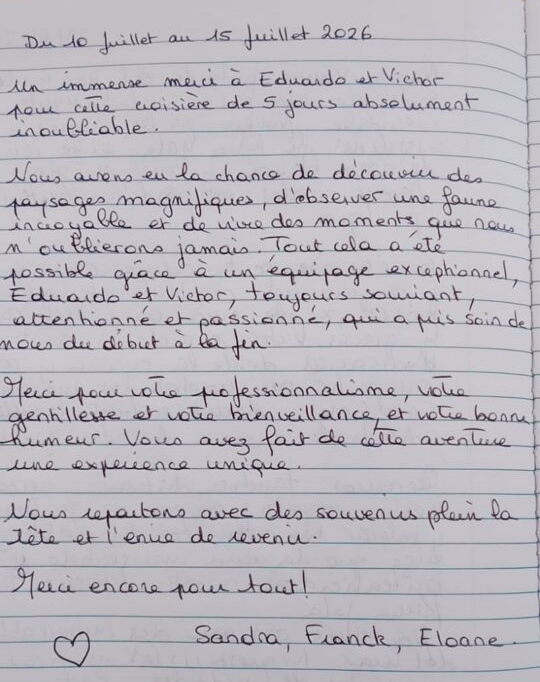 Du 10 Juillet au 15 Juillet 2026
Un immense merci à Eduardo et Victor
pour cette croisière de 5 jours absolument
inoubliable.
Nous avons eu la chance de découvrir des
paysages magnifiques, d'observer une faune
incroyable et de vivre des moments que nous
n'oublierons jamais. Tout cela a été
possible grâce à un équipage exceptionnel,
Eduardo et Victor, toujours souriant,
attentionné et passionné, qui a pris soin de
nous du début à la fin.
Merci pour votre professionnalisme, votre
gentillesse et votre bienveillance, et votre bonne
humeur. Vous avez fait de cette aventure
une expérience unique.
Nous repartons avec des souvenirs plein la
tête et l'envie de revenir.
Merci encore pour tout!
Sandra, Franck, Eloane.